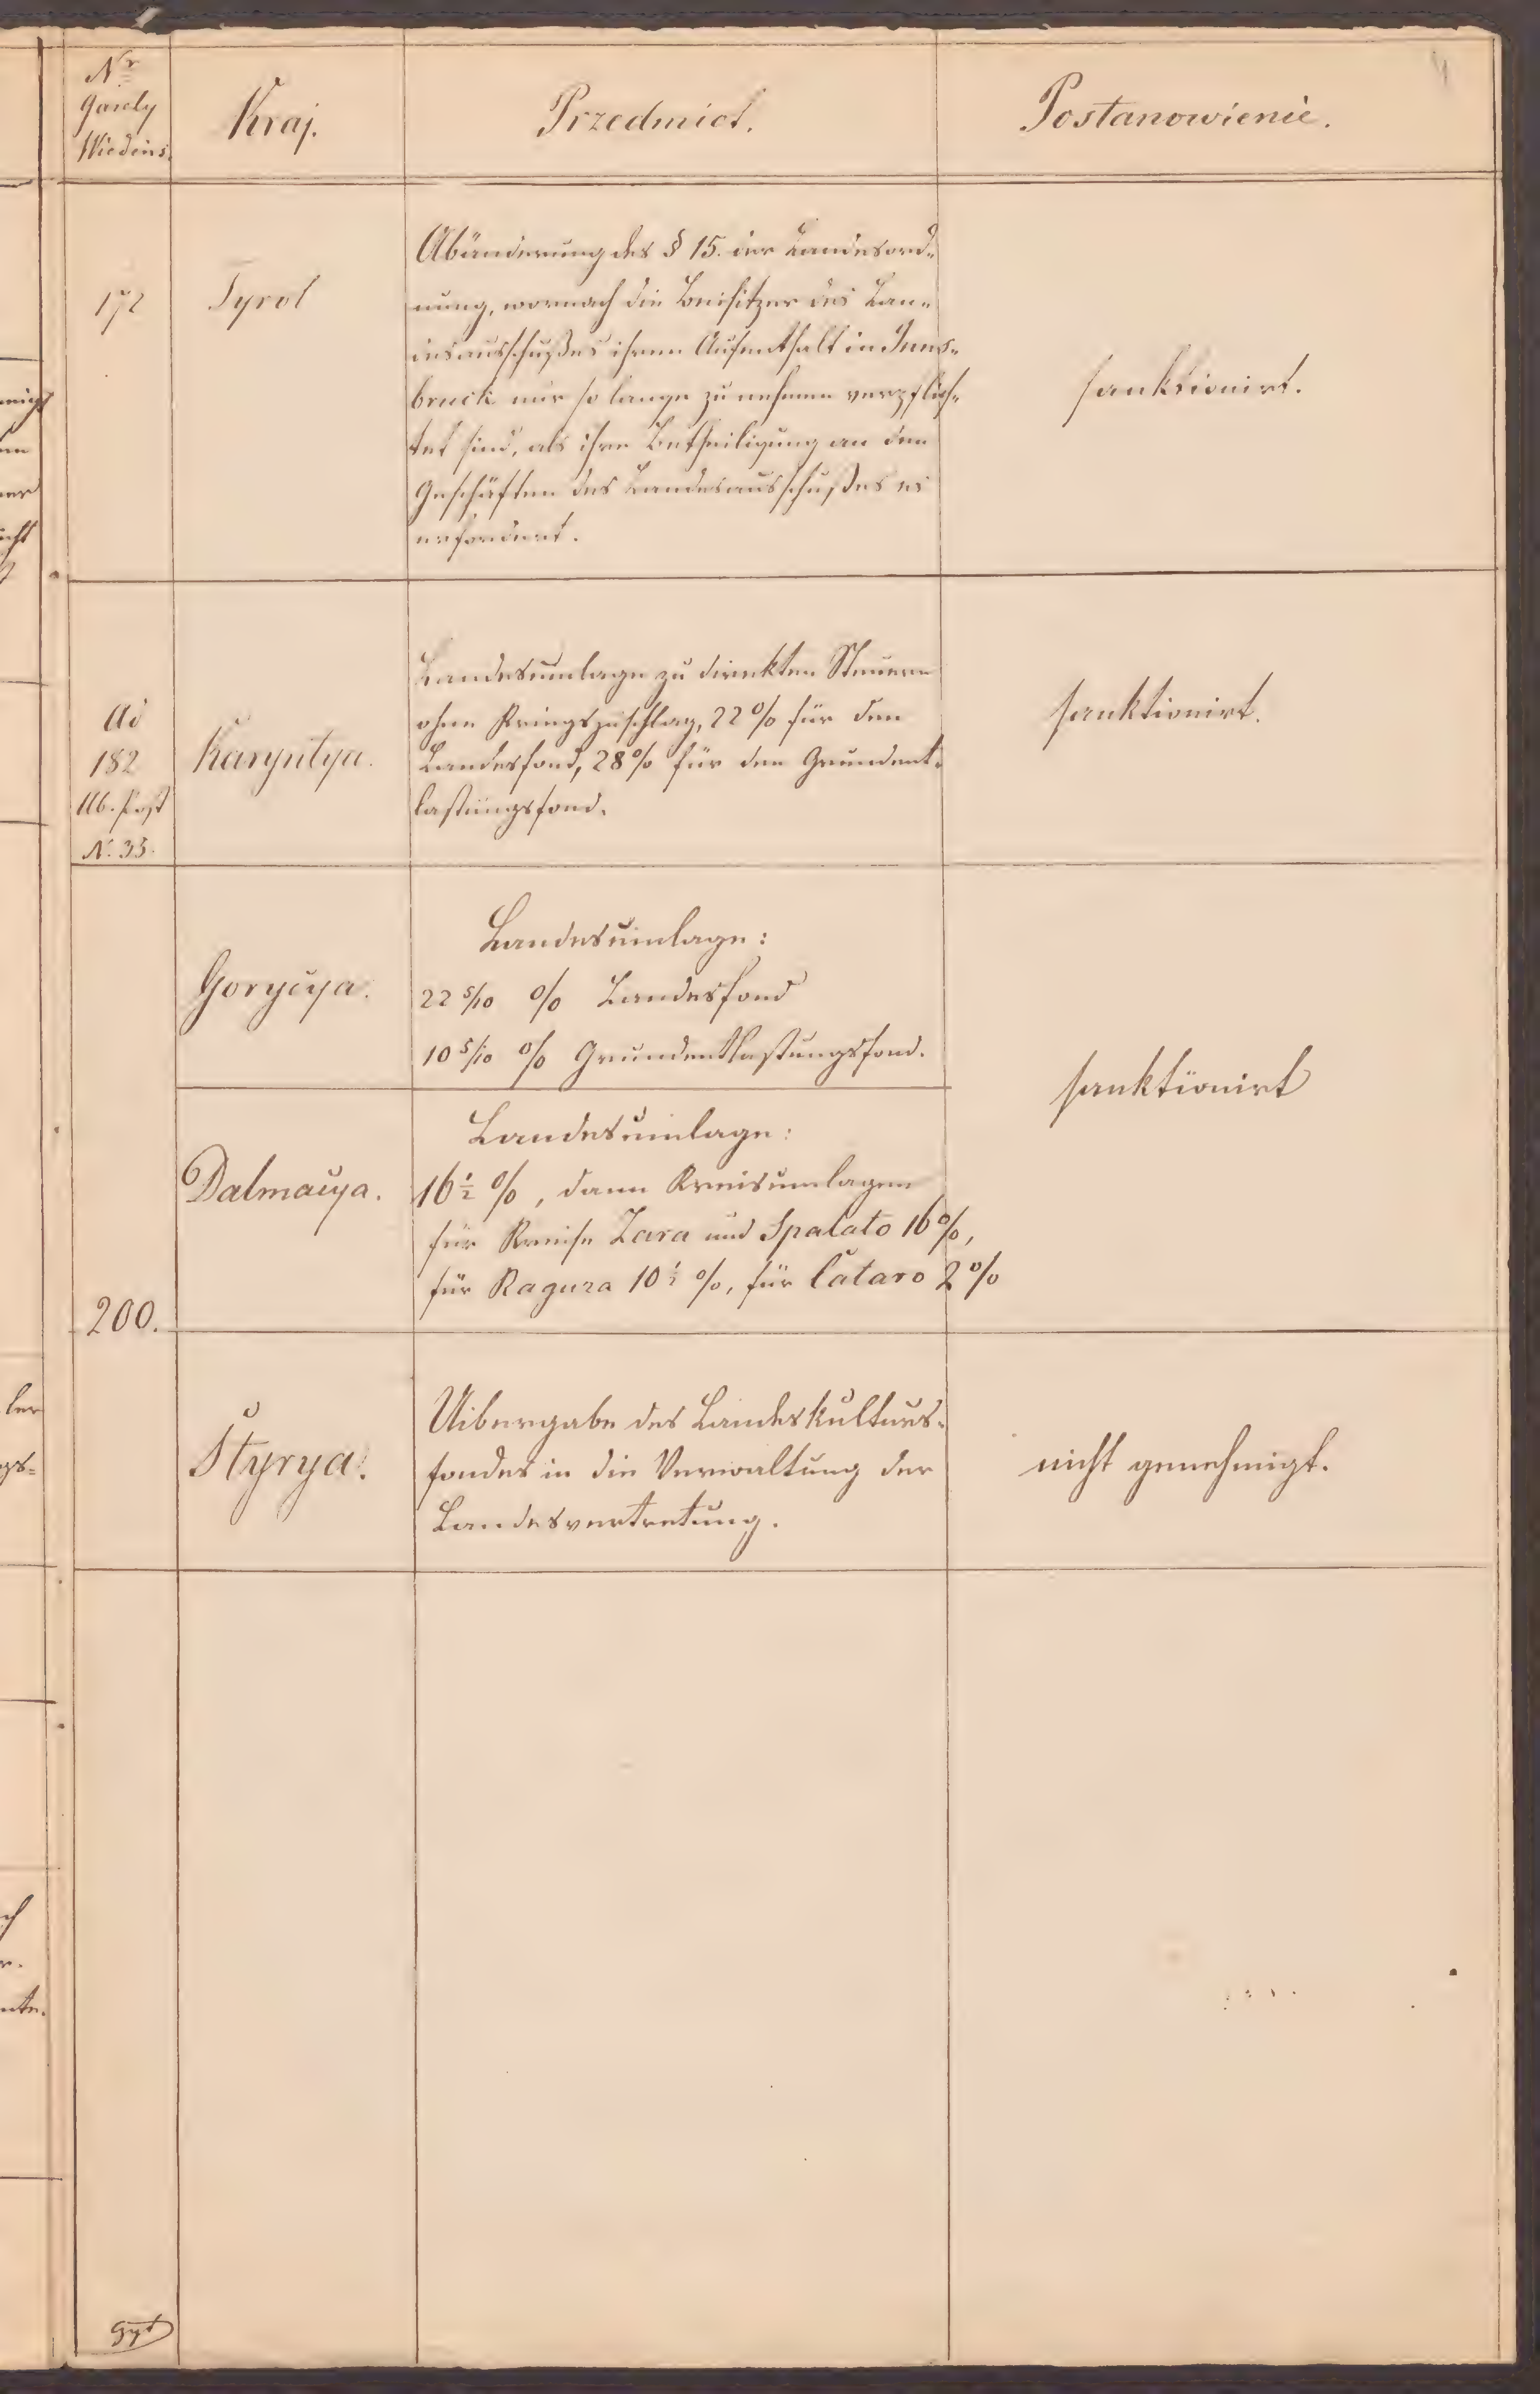 4
Nr
Gazety
Wiedens.
Kraj.
Przedmiot.
Postanowienie.
172
Tyrol
Abänderung des § 15. der Landesord-
nung, wornach die Beisitzer des Lan-
desausschußes ihren Aufenthalt in Inns-
bruck nur so lange zu nehmen verpflich-
tet sind, als ihre Betheiligung an den
Geschäften des Landesausschußes es
erfordert.
sanktionirt.
Ad
182
Ab. Post
N. 35.
Karyntya.
Landesumlage zu direkten Steuern
ohne Kriegszuschlag, 22% für den
Landesfond, 28% für den Grundent-
lastungsfond.
sanktionirt.
Gorycya.
Landesumlage:
22 5/10 % Landesfond
10 5/10 % Grundentlastungsfond.
sanktionirt
Dalmacya.
Landesumlage:
16 1/2 %, dann Kreisumlagen
für Kreise Zara und Spalato 16%,
für Raguza 10 1/2 %, für Cataro 2%
200.
Styrya.
Uibergabe des Landeskulturs-
fondes in die Verwaltung der
Landesvertretung.
nicht genehmigt.